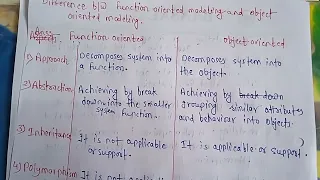 Difference b/w function oriented modeling and object
oriented modeling.
Base Function oriented object oriented
1) Approach Decomposes system into Decomposes system into
a function. the object.
2) Abstraction Achieving by break Achieving by break down
down into the smaller grouping similar attributes
system function. and behaviour into object.
3) Inheritance It is not applicable It is applicable or
or support. support.
4) Polymorphism It is not